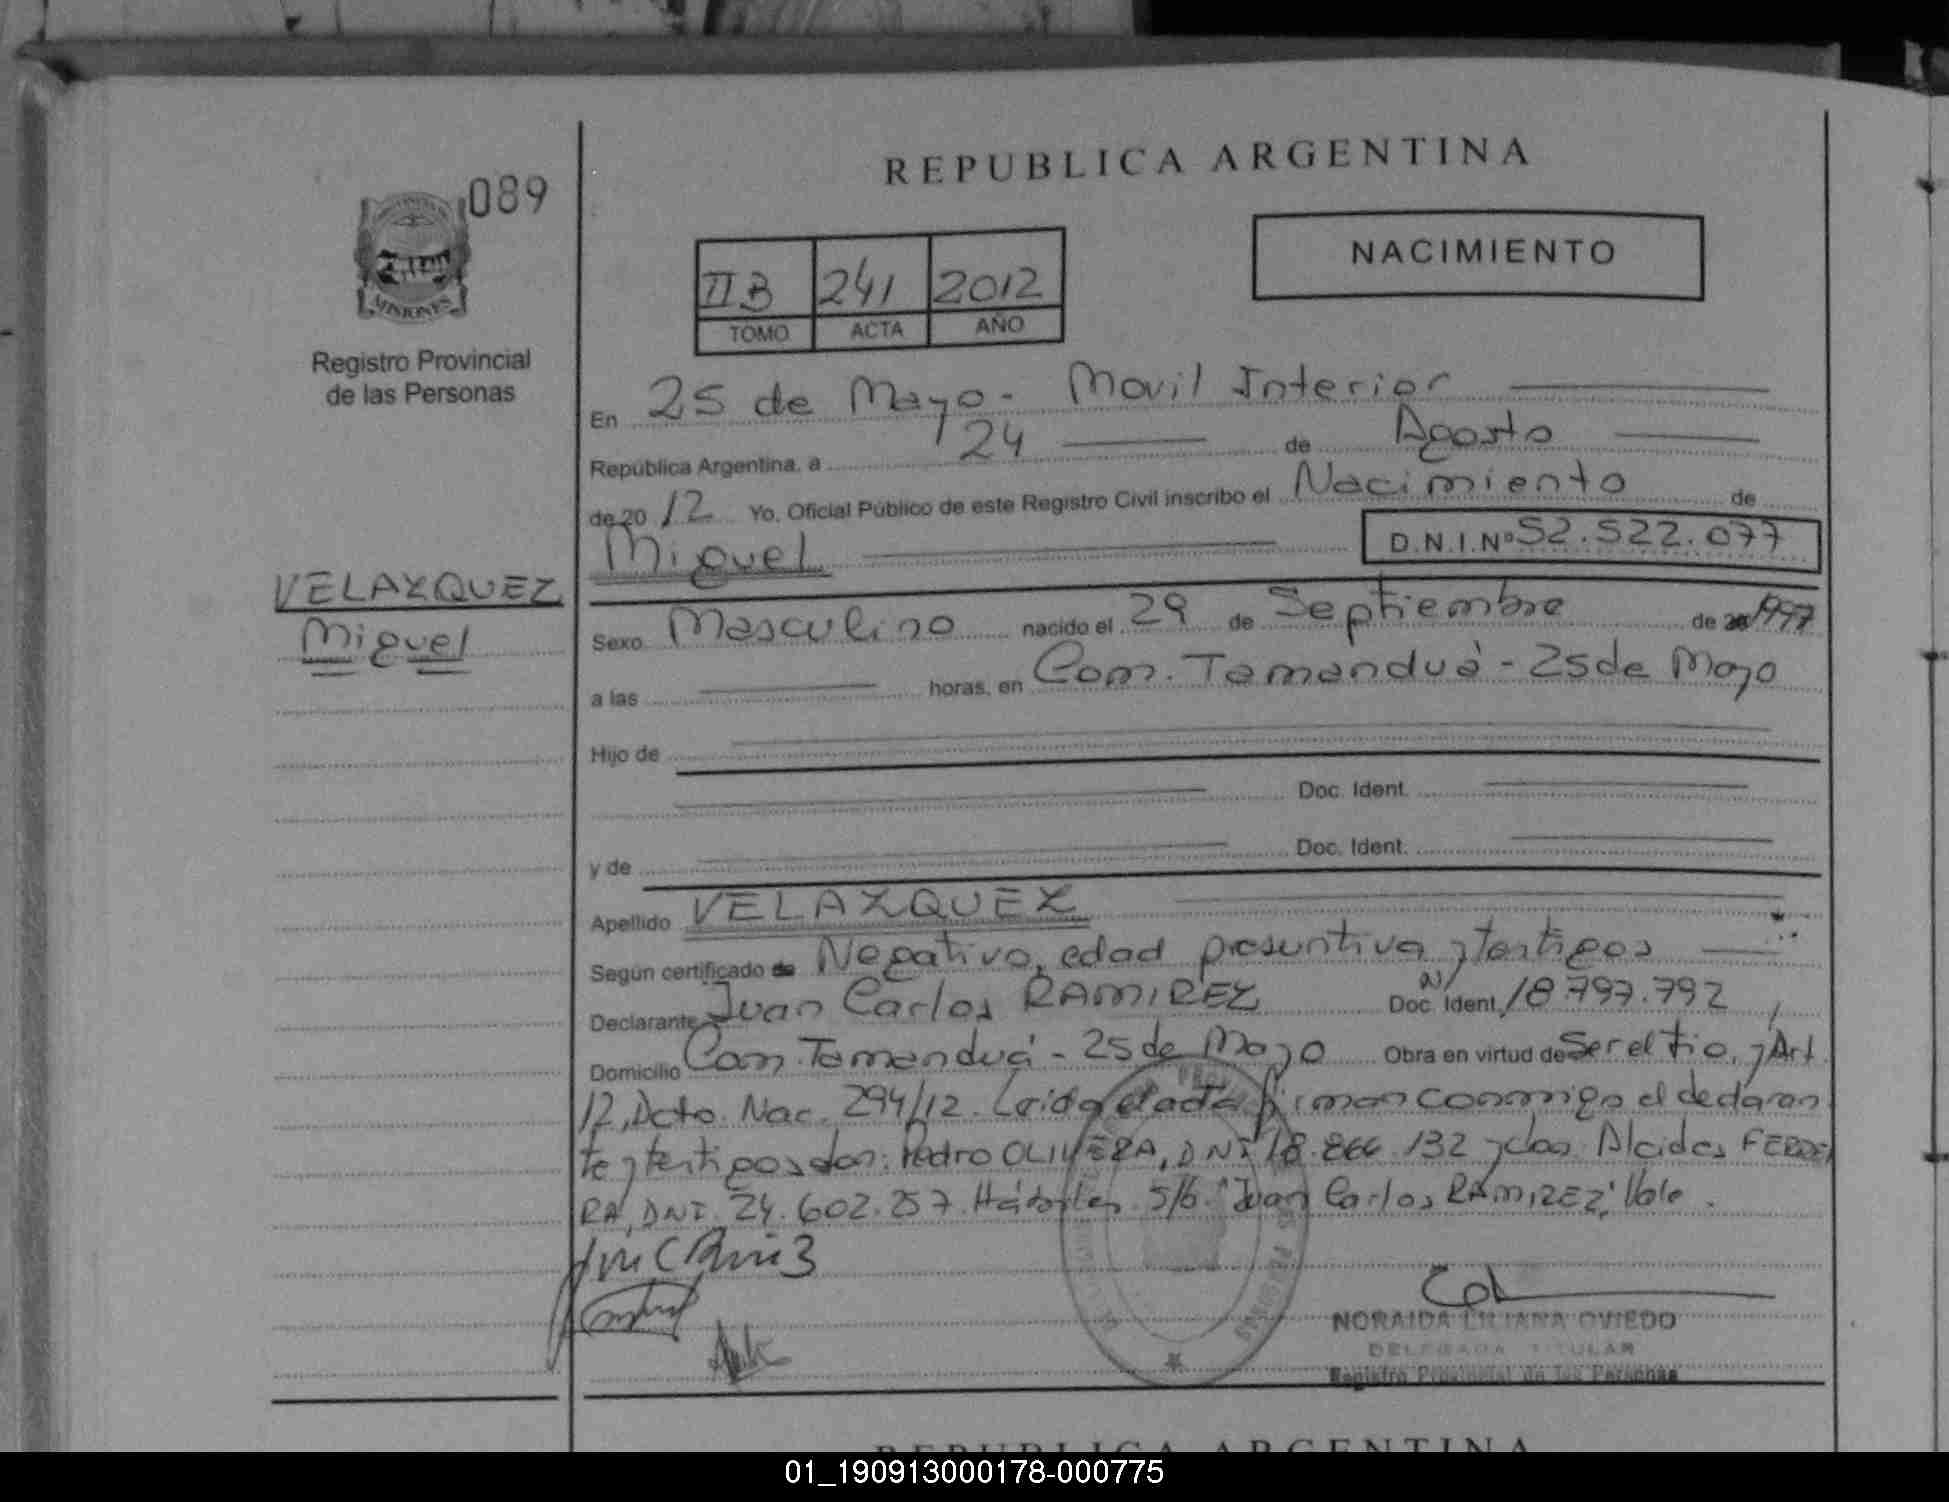 REPUBLICA ARGENTINA
089
MISIONES
Registro Provincial
de las Personas
NACIMIENTO
II B 241 2012
TOMO ACTA AÑO
En 25 de Mayo - Movil Interior
República Argentina, a 24 de Agosto
de 2012 Yo, Oficial Público de este Registro Civil inscribo el Nacimiento de
Miguel D.N.I.Nº 52.522.077
VELAZQUEZ
Miguel
Sexo Masculino nacido el 29 de Septiembre de 1997
a las horas, en Com. Tamanduá - 25 de Mayo
Hijo de
Doc. Ident.
y de Doc. Ident.
Apellido VELAZQUEZ
Según certificado de Negativo, edad presuntiva y testigos
Declarante Juan Carlos RAMIREZ Doc. Ident. 18.797.792
Domicilio Com. Tamanduá - 25 de Mayo Obra en virtud de Ser el tio, y Art.
12, Dcto. Nac. 294/12. Leida el acta firman conmigo el declaran
te y testigos don: Pedro OLIVERA, DNI 18.866.132 y don Alcides FERREI
RA, DNI. 24.602.257. Hábiles. S/b. "Juan Carlos RAMIREZ", Vale.
NORAIDA LILIANA OVIEDO
DELEGADA TITULAR
Registro Provincial de las Personas
REPUBLICA ARGENTINA
01_190913000178-000775